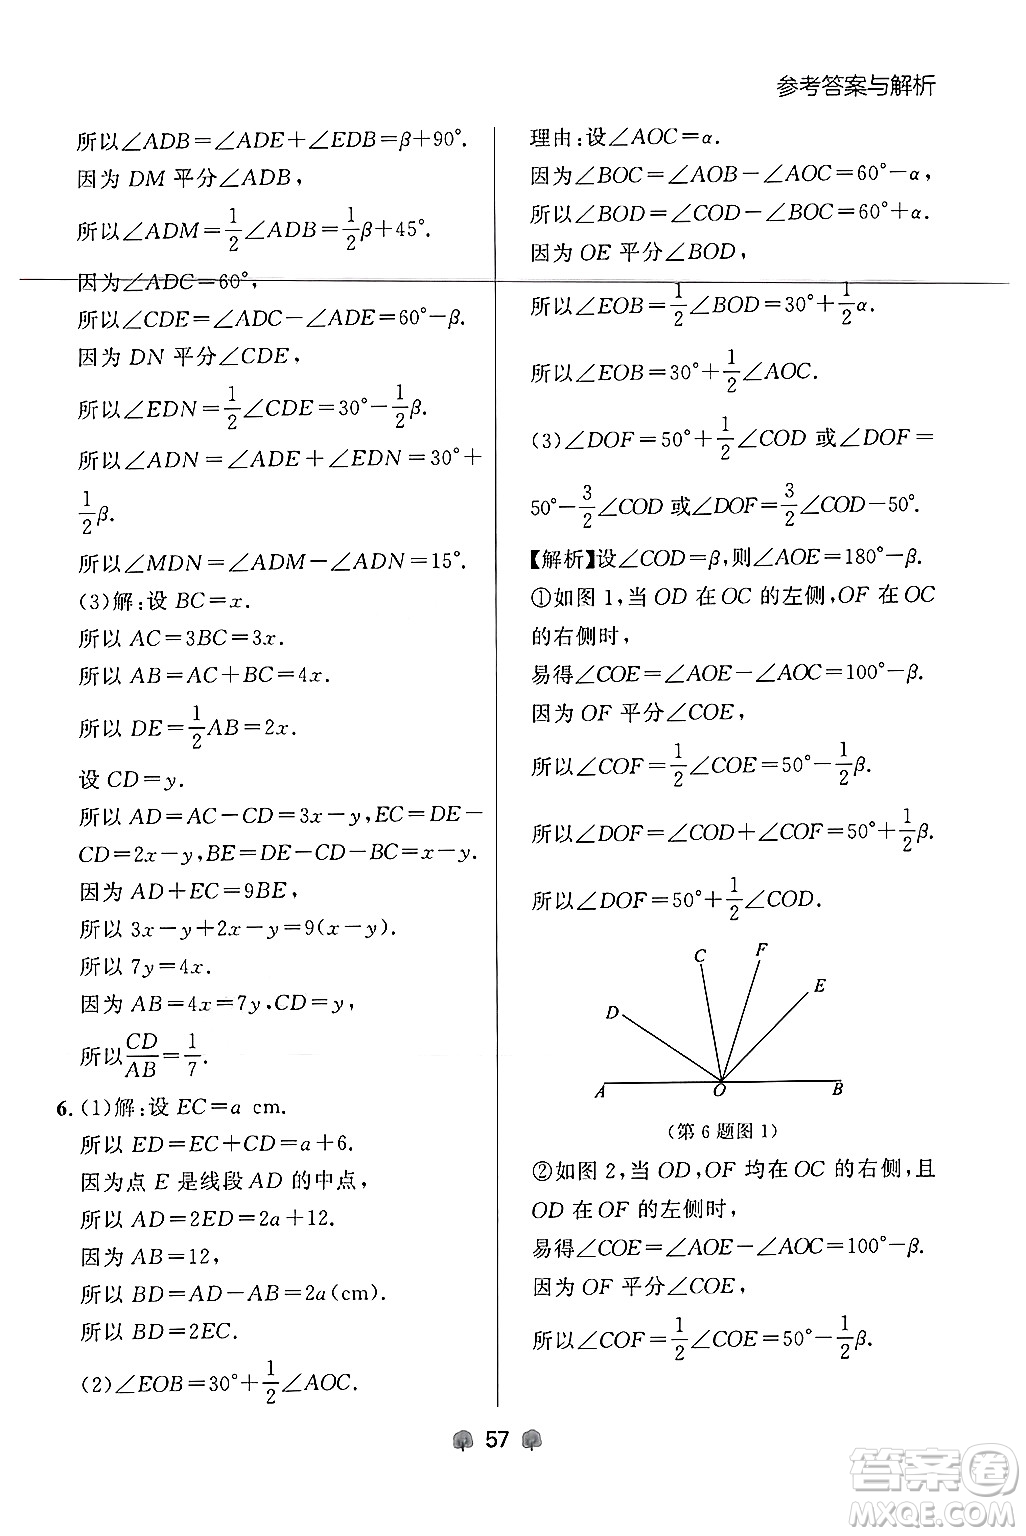 参考答案与解析
所以∠ADB=∠ADE+∠EDB=β+90°.
因为 DM 平分∠ADB,
所以∠ADM=1/2∠ADB=1/2β+45°.
因为∠ADC=60°,
所以∠CDE=∠ADC-∠ADE=60°-β.
因为 DN 平分∠CDE,
所以∠EDN=1/2∠CDE=30°-1/2β.
所以∠ADN=∠ADE+∠EDN=30°+
1/2β.
所以∠MDN=∠ADM-∠ADN=15°.
(3)解:设 BC=x.
所以 AC=3BC=3x.
所以 AB=AC+BC=4x.
所以 DE=1/2AB=2x.
设 CD=y.
所以 AD=AC-CD=3x-y,EC=DE-
CD=2x-y,BE=DE-CD-BC=x-y.
因为 AD+EC=9BE,
所以 3x-y+2x-y=9(x-y).
所以 7y=4x.
因为 AB=4x=7y,CD=y,
所以CD/AB=1/7.
6. (1)解:设 EC=a cm.
所以 ED=EC+CD=a+6.
因为点 E 是线段 AD 的中点,
所以 AD=2ED=2a+12.
因为 AB=12,
所以 BD=AD-AB=2a(cm).
所以 BD=2EC.
(2)∠EOB=30°+1/2∠AOC.
理由:设∠AOC=α.
因为∠BOC=∠AOB-∠AOC=60°-α,
所以∠BOD=∠COD-∠BOC=60°+α.
因为 OE 平分∠BOD,
所以∠EOB=1/2∠BOD=30°+1/2α.
所以∠EOB=30°+1/2∠AOC.
(3)∠DOF=50°+1/2∠COD 或∠DOF=
50°-3/2∠COD 或∠DOF=3/2∠COD-50°.
【解析】设∠COD=β,则∠AOE=180°-β.
①如图 1,当 OD 在 OC 的左侧,OF 在 OC
的右侧时,
易得∠COE=∠AOE-∠AOC=100°-β.
因为 OF 平分∠COE,
所以∠COF=1/2∠COE=50°-1/2β.
所以∠DOF=∠COD+∠COF=50°+1/2β.
所以∠DOF=50°+1/2∠COD.
C F
E
D
A O B
(第 6 题图 1)
②如图 2,当 OD,OF 均在 OC 的右侧,且
OD 在 OF 的左侧时,
易得∠COE=∠AOE-∠AOC=100°-β.
因为 OF 平分∠COE,
所以∠COF=1/2∠COE=50°-1/2β.
57
答案圈
MXQE.COM